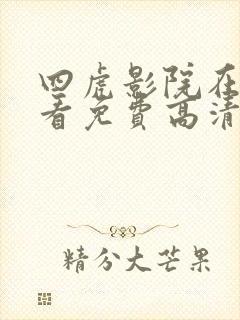 四虎影院在
看免费高清
精分大芒果